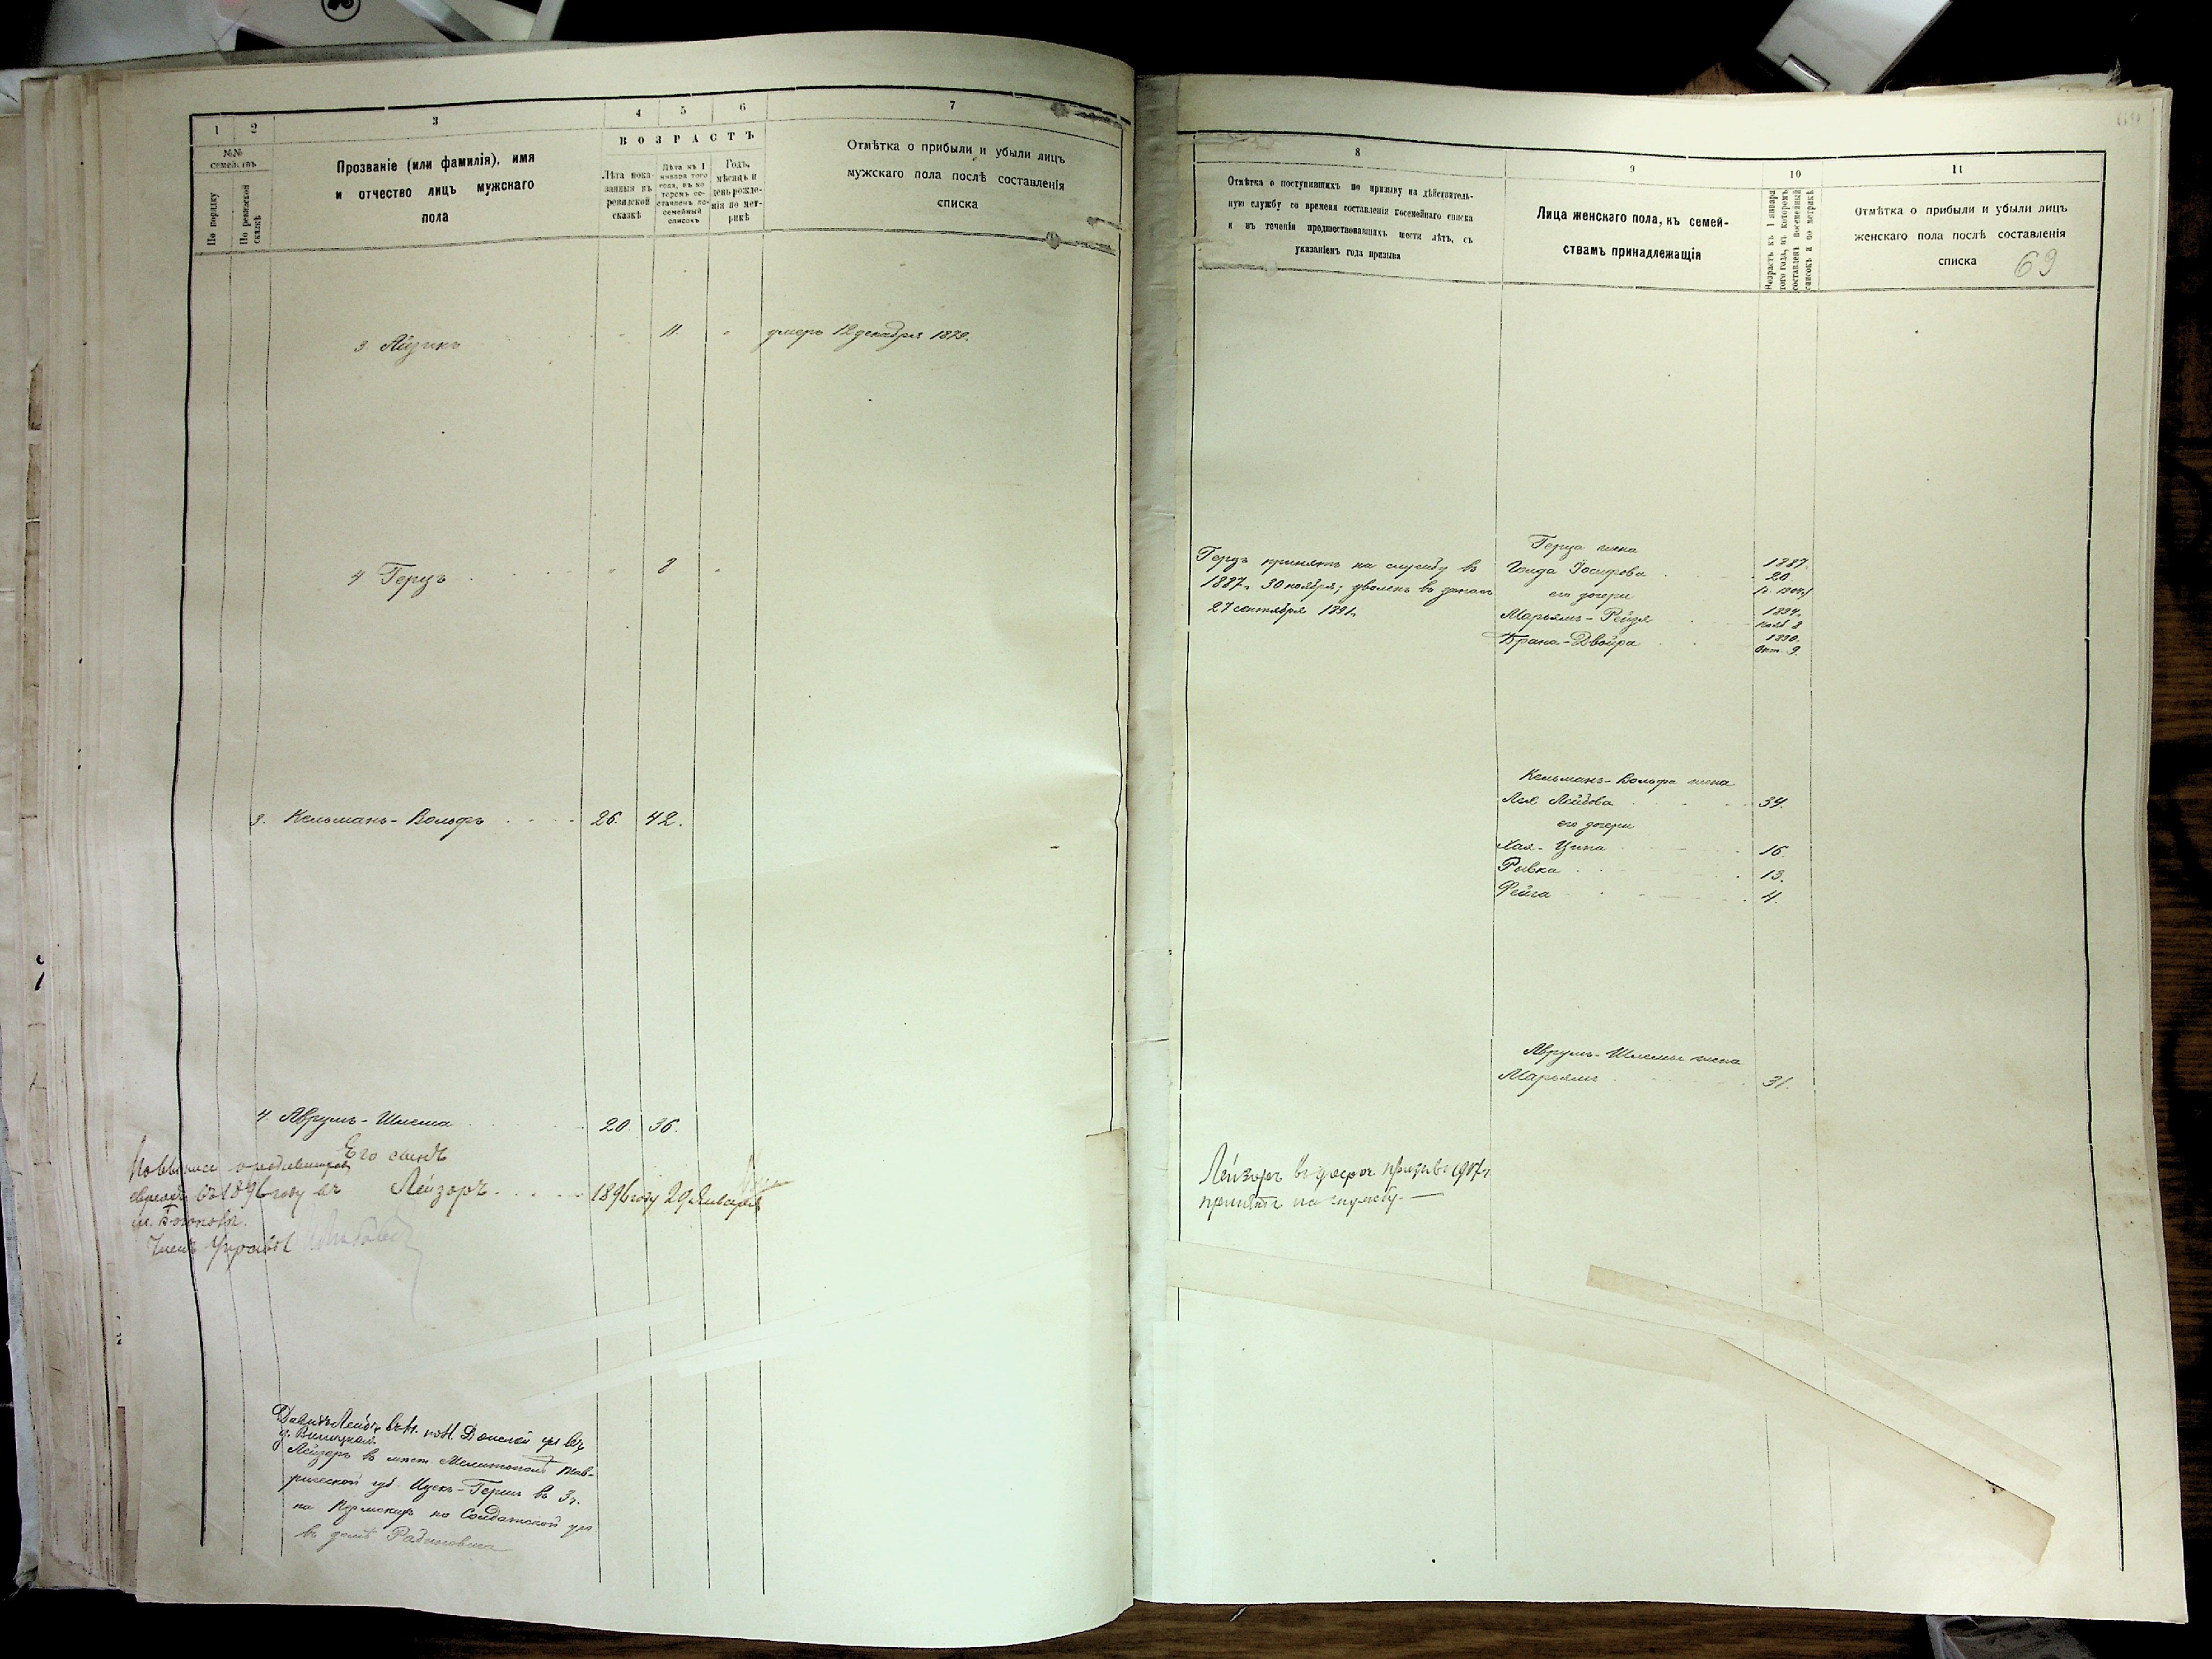 1
2
3
4
5
6
7
№№
семействъ
По порядку
По ревизской
сказкѣ
Прозваніе (или фамилія), имя
и отчество лицъ мужскаго
пола
ВОЗРАСТЪ
Лѣта пока-
занныя въ
ревизской
сказкѣ
Лѣта къ 1
января того
года, въ ко
торомъ со-
ставленъ по-
семейный
списокъ
Годъ,
мѣсяцъ и
день рожде-
нія по мет-
рикѣ
Отмѣтка о прибыли и убыли лицъ
мужскаго пола послѣ составленія
списка
3 Айзикъ 11 умеръ 12 декабря 1879.
4 Герцъ 8
3. Кельманъ-Вольфъ 26. 42.
4. Аврумъ-Шлема 20. 36.
Его сынъ
Лейзоръ 1896 году 29 Января
въ 1896 году въ
Членъ Управы
Лейзеръ въ мѣст. Мелитополѣ Тав-
рической губ. Ицекъ-Герша въ 3 ч.
на по Солдатской ул
въ домѣ Рабиновича
8
9
10
11
Отмѣтка о поступившихъ по призыву на дѣйствитель-
ную службу со времени составленія посемейнаго списка
и въ теченіи предшествовавшихъ шести лѣтъ, съ
указаніемъ года призыва
Лица женскаго пола, къ семей-
ствамъ принадлежащія
Возрастъ къ 1 января
того года, въ которомъ
составленъ посемейный
списокъ и по метрикѣ
Отмѣтка о прибыли и убыли лицъ
женскаго пола послѣ составленія
списка
69
Герцъ принятъ на службу въ
1887 г. 30 ноября; уволенъ въ запасъ
27 сентября 1891 г.
Герца жена
Іосифова 1887.
20.
его дочери
Марьямъ-Рейзя 1894.
Двойра 1890.
Окт. 9.
Кельманъ-Вольфа жена
Лея Лейбова 34.
его дочери
Хая-Ципа 16.
Рывка 13.
Фейга 4.
Аврумъ-Шлемы жена
Марьямъ 31.
Лейзоръ призывъ 1917 г.
принятъ на службу.